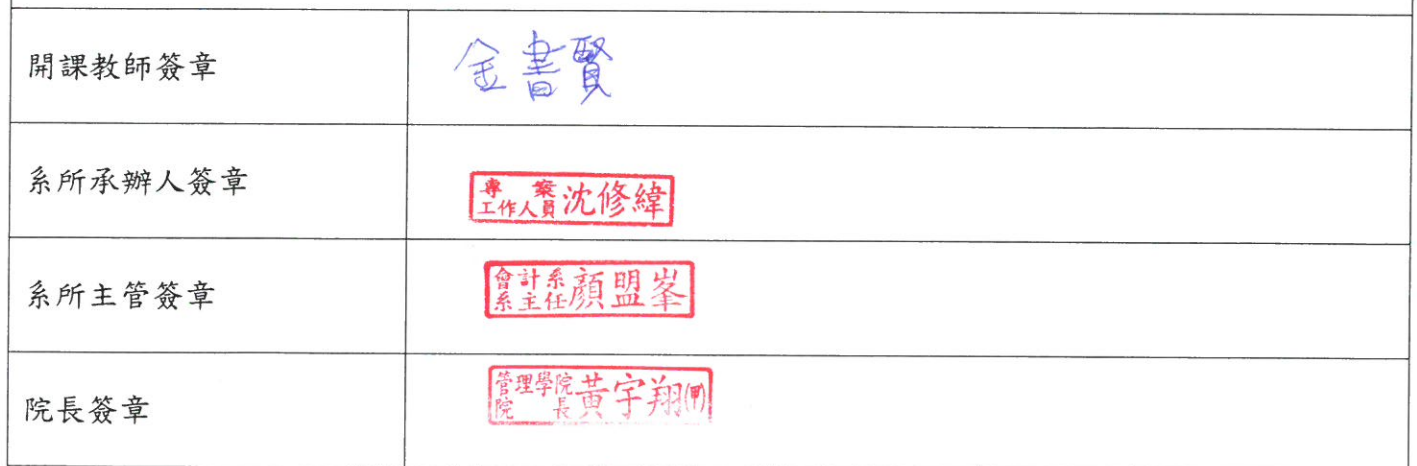 開課教師簽章
金書賢
系所承辦人簽章
專案
工作人員 沈修緯
系所主管簽章
會計系
系主任 顏盟峯
院長簽章
管理學院
院長 黃宇翔(甲)